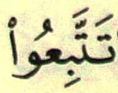 تَتَّبِعُوا۟